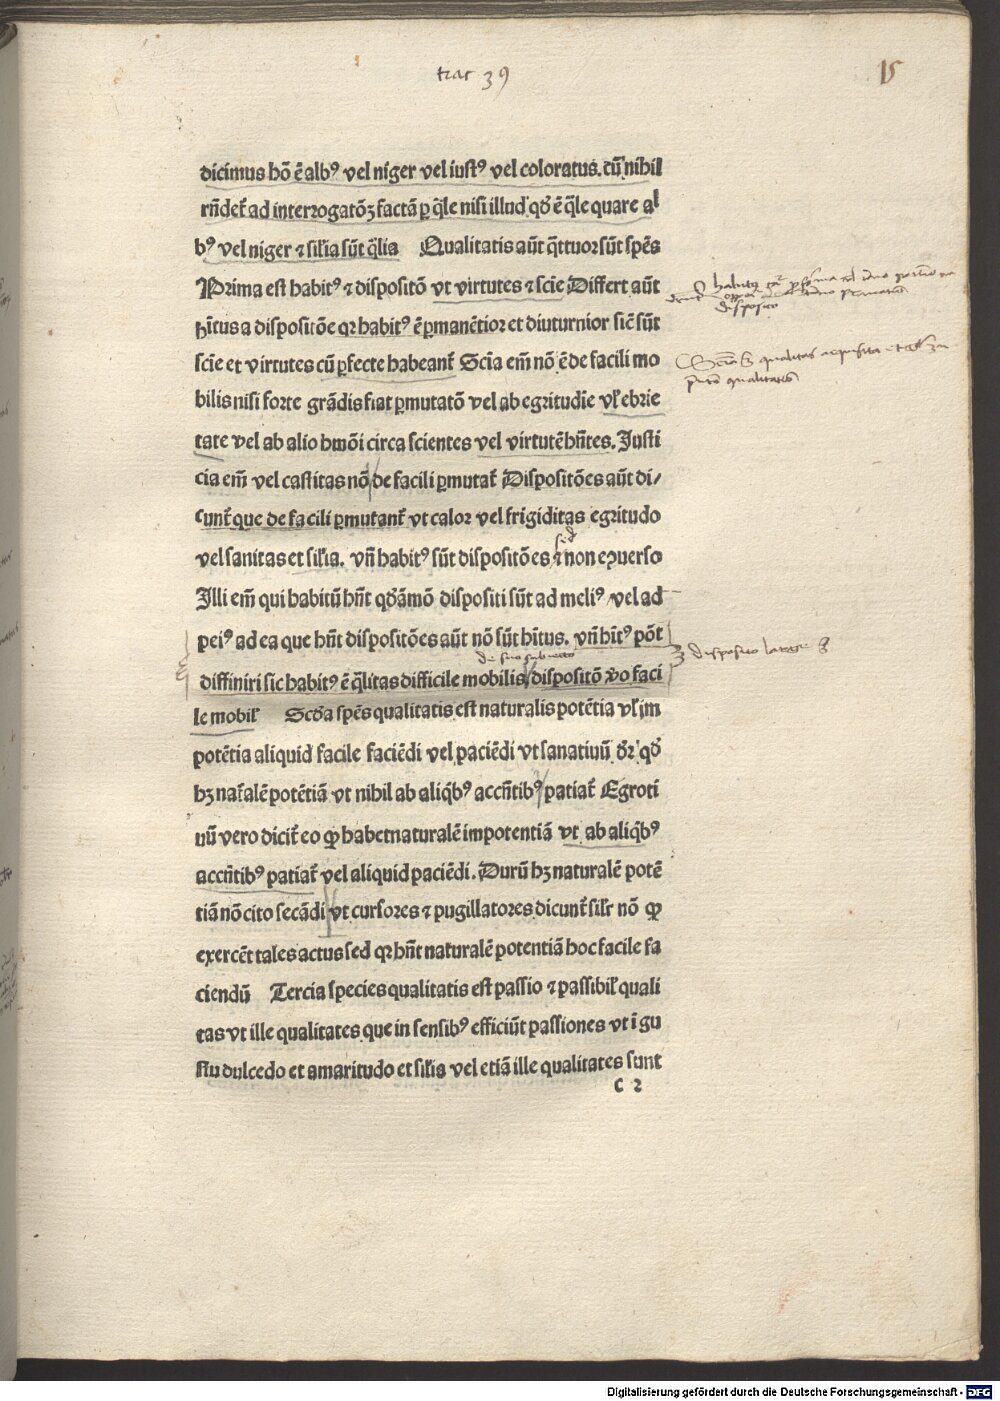 trac 39
15
dicimus hō ē albꝰ vel niger vel iustꝰ vel coloratus. cū nihil
rn̄det̄ ad interrogatōꝫ factā ꝑ q̄le nisi illud qd̄ ē q̄le quare al
bꝰ vel niger ⁊ silīa sūt q̄lia Qualitatis aūt q̄ttuor sūt spēs
Prima est habitꝰ ⁊ dispositō vt virtutes ⁊ scīe Differt aūt
hītus a dispositōe qꝛ habitꝰ ē ꝑmanētior et diuturnior sic̄ sūt
scīe et virtutes cū ꝑfecte habeant̄ Scīa em̄ nō ē de facili mo
bilis nisi forte grādis fiat ꝑmutatō vel ab egritudīe vl̄ ebrie
tate vel ab alio hmōi circa scientes vel virtutē hn̄tes. Justi
cia em̄ vel castitas nō de facili ꝑmutat̄ Dispositōes aūt di/
cunt̄ que de facili ꝑmutant̄ vt calor vel frigiditas egritudo
vel sanitas et silīa. vn̄ habitꝰ sūt dispositōes ⁊ non eꝯuerso
sꝫ
Illi em̄ qui habitū hn̄t qd̄āmō dispositi sūt ad meliꝰ vel ad
peiꝰ ad ea que hn̄t dispositōes aūt nō sūt hītus. vn̄ hītꝰ pōt
de suo subiecto
diffiniri sic habitꝰ ē q̄litas difficile mobilis dispositō v̄o faci
le mobil̄ Scd̄a spēs qualitatis est naturalis potētia vl̄ im
potētia aliquid facile faciēdi vel paciēdi vt sanatiuū dr̄ qd̄
hꝫ nat̄alē potētiā vt nihil ab aliq̄bꝰ accn̄tibꝰ patiat̄ Egroti
uū vero dicit̄ eo ꝙ habet naturalē impotentiā vt ab aliq̄bꝰ
accn̄tibꝰ patiat̄ vel aliquid paciēdi. Durū hꝫ naturalē potē
tiā nō cito secādi vt cursores ⁊ pugillatores dicunt̄ silr̄ nō ꝙ
exercēt tales actus sed qꝛ hn̄t naturalē potentiā hoc facile fa
ciendū Tercia species qualitatis est passio ⁊ passibil̄ quali
tas vt ille qualitates que in sensibꝰ efficiūt passiones vt ī gu
stu dulcedo et amaritudo et silīa vel etiā ille qualitates sunt
c 2
dispositio
qualitas acquisita
qualitatis
dispositio large
Digitalisierung gefördert durch die Deutsche Forschungsgemeinschaft - DFG